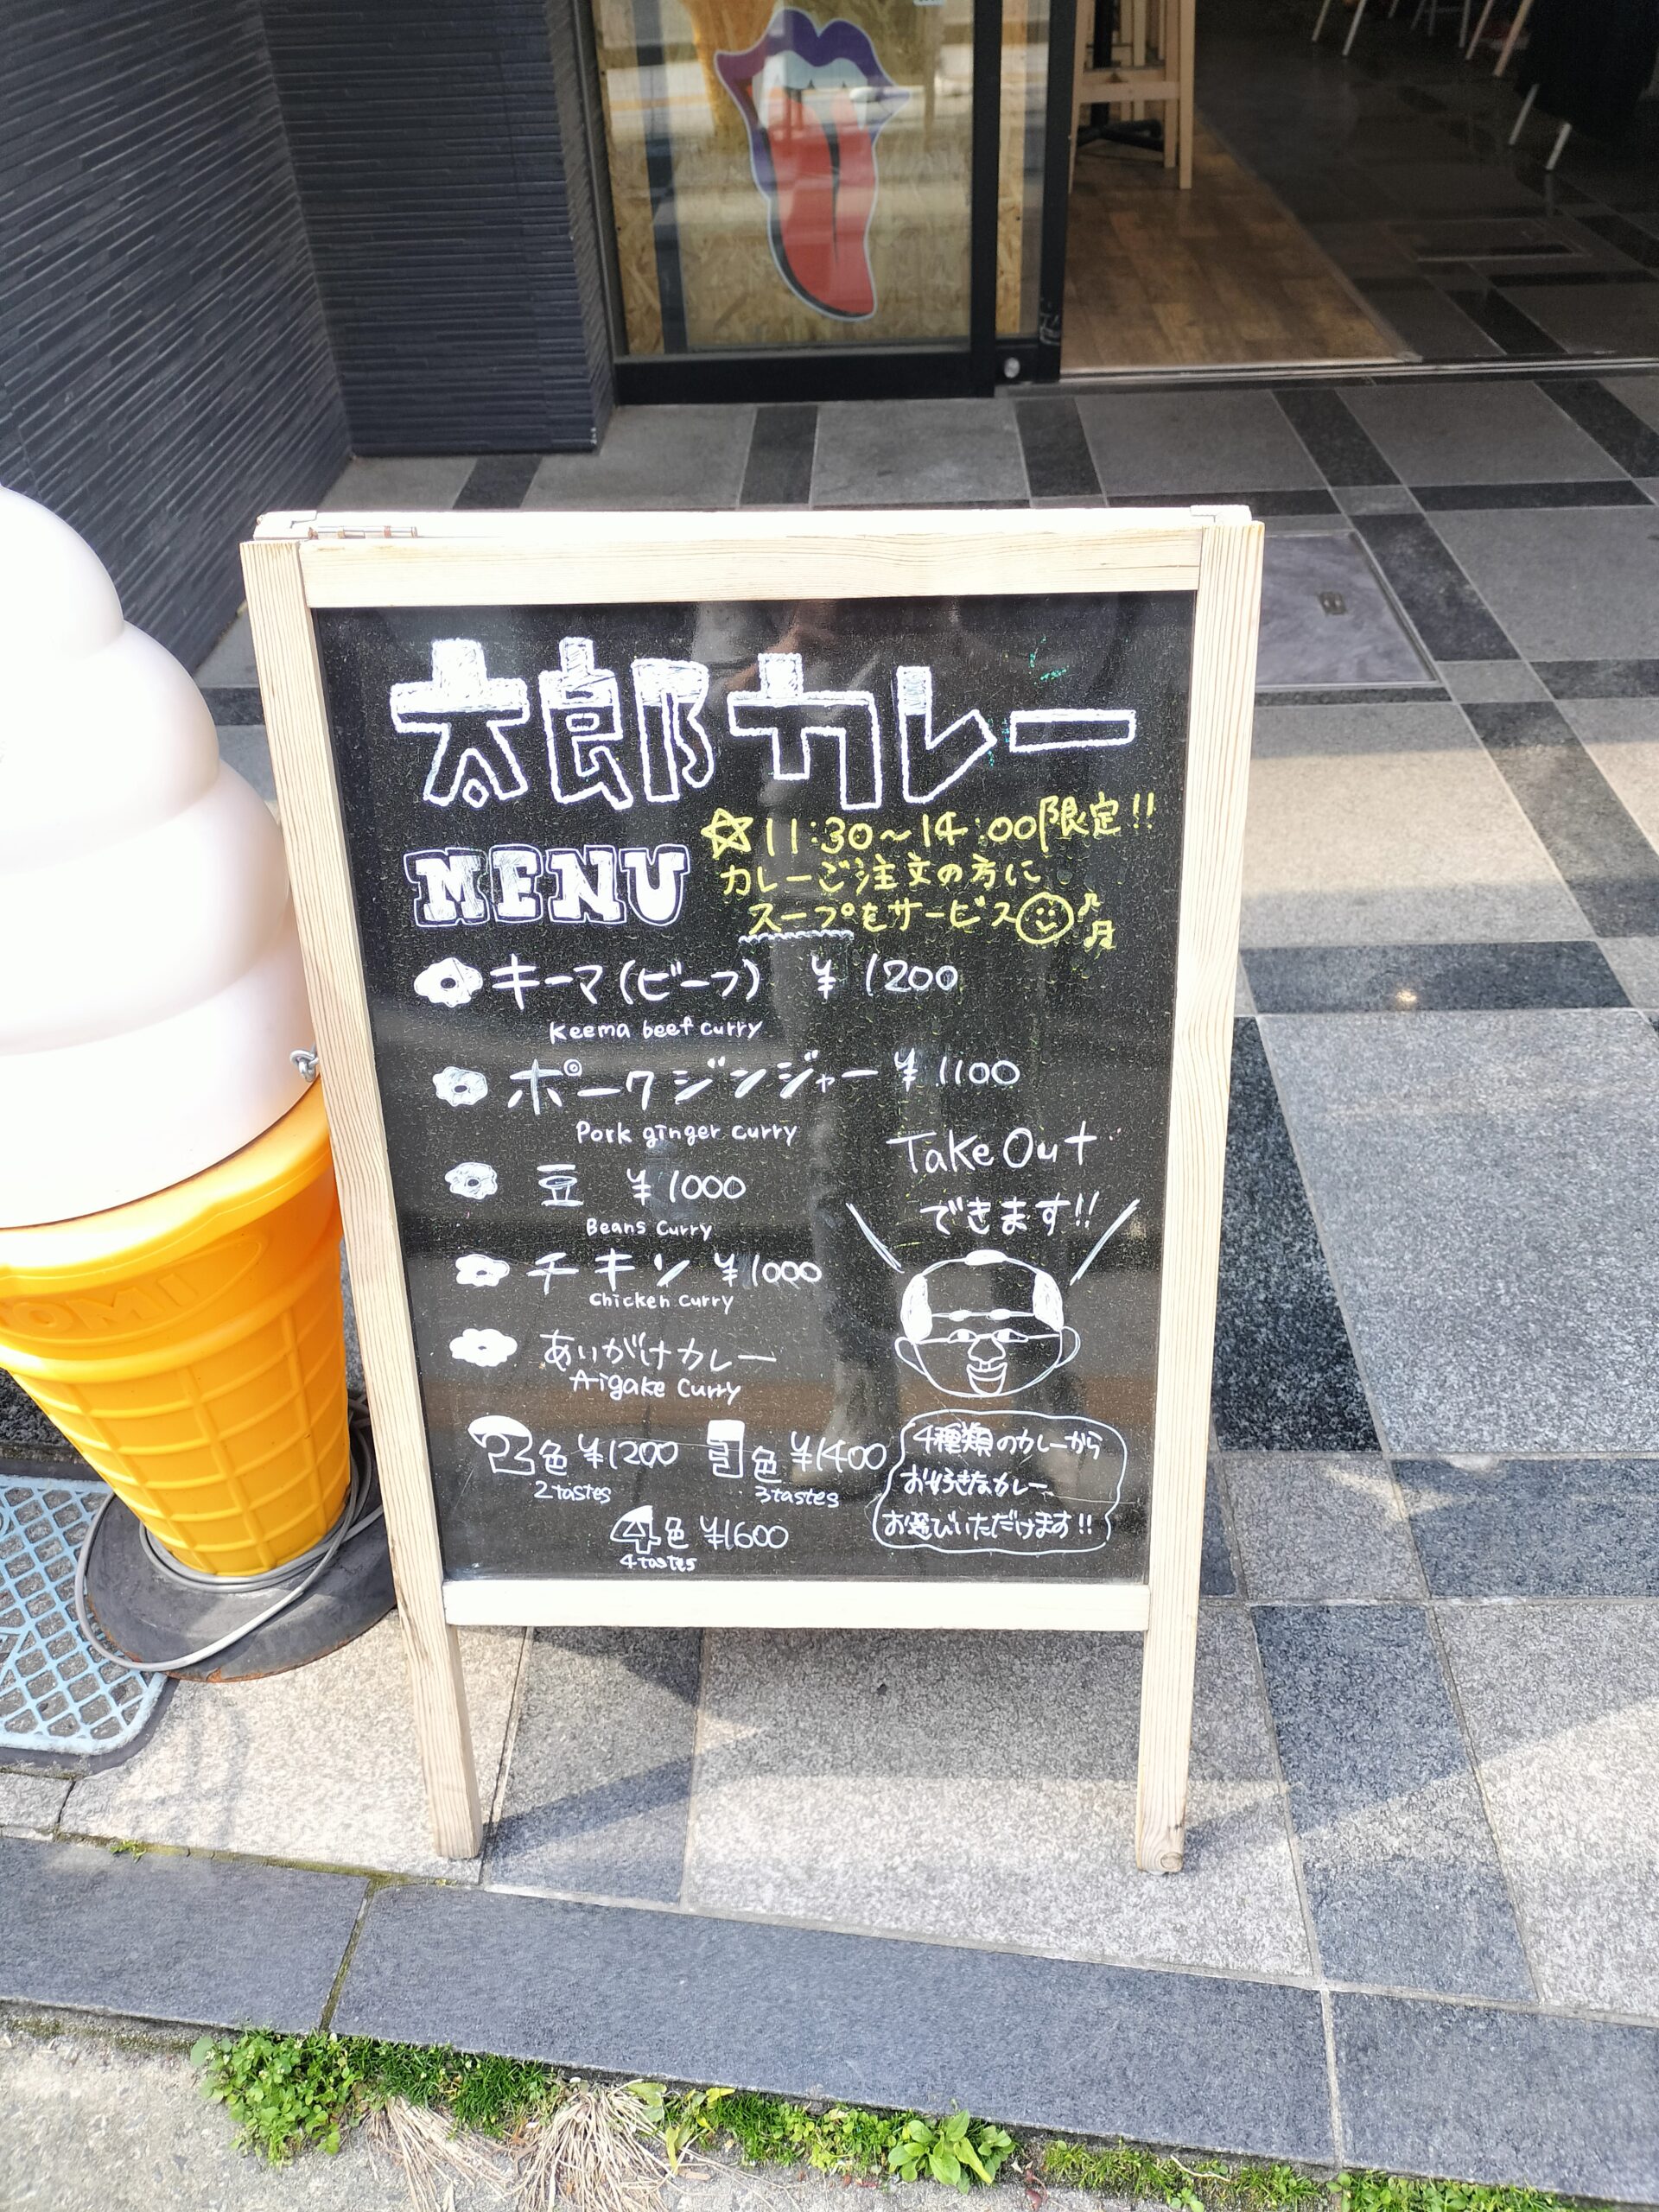 太郎カレー
MENU
☆11:30～14:00限定!!
カレーご注文の方に
スープをサービス
キーマ(ビーフ) ¥1200
Keema beef curry
ポークジンジャー ¥1100
Pork ginger curry
豆 ¥1000
Beans Curry
チキン ¥1000
Chicken Curry
あいがけカレー
Aigake Curry
2色 ¥1200 3色 ¥1400
2tastes 3tastes
4色 ¥1600
4tastes
Take Out
できます!!
4種類のカレーから
お好きなカレー、
お選びいただけます!!